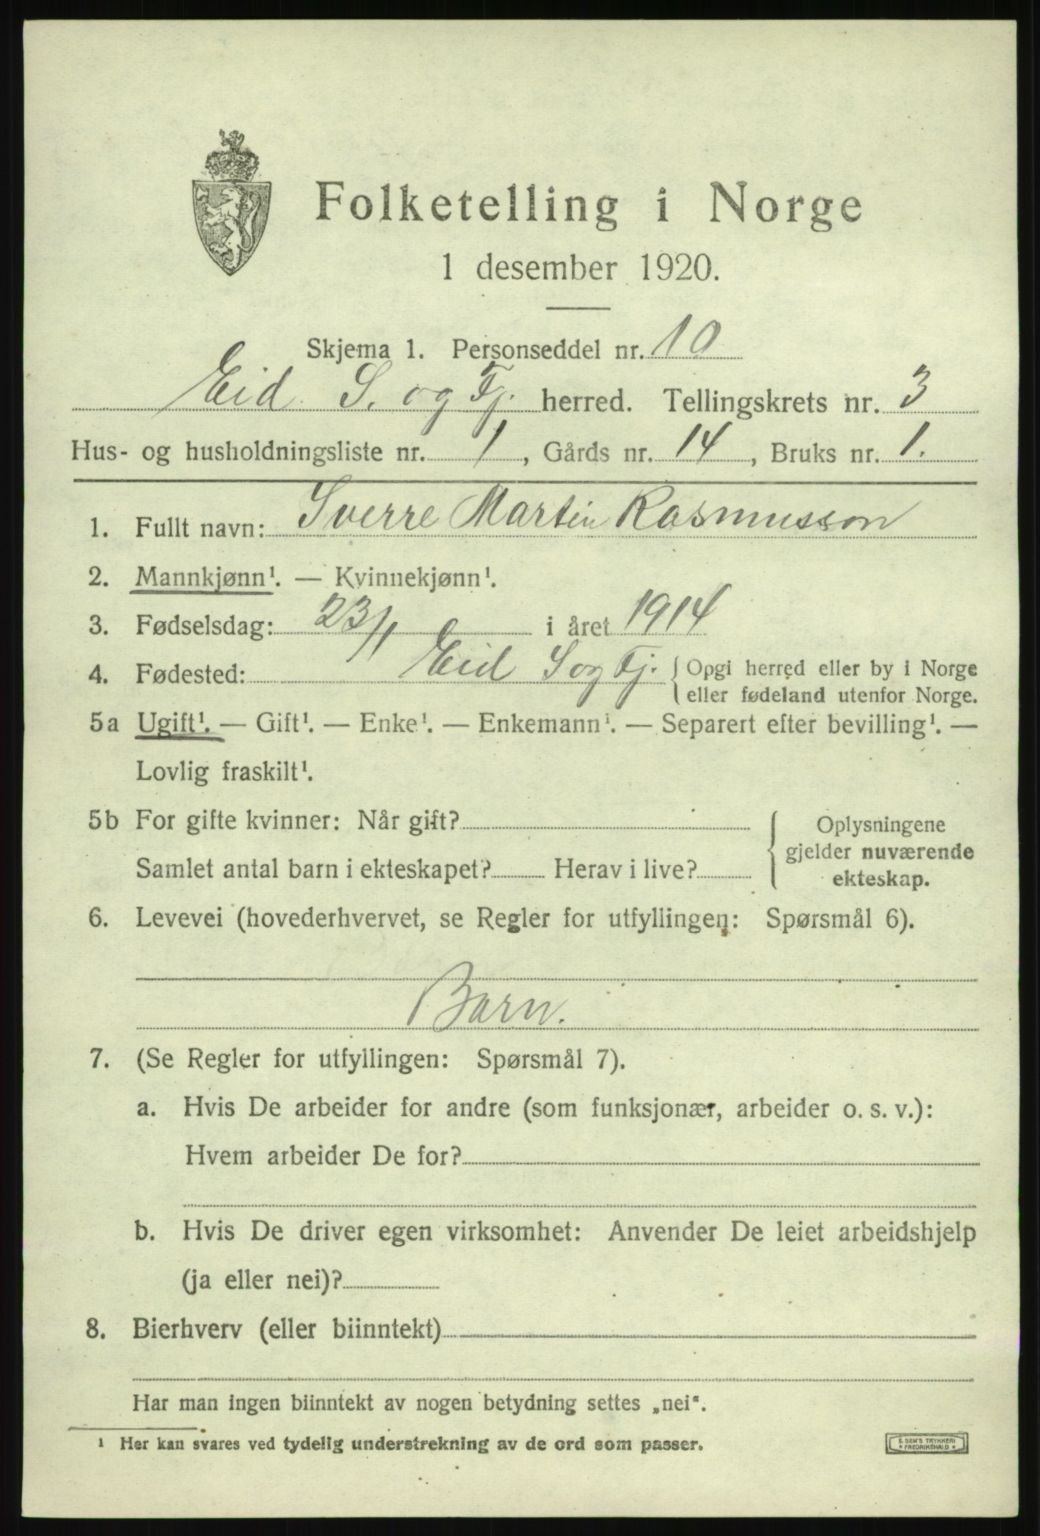 Folketelling i Norge
1 desember 1920.
Skjema 1. Personseddel nr. 10
Eid S. og Fj. herred. Tellingskrets nr. 3
Hus- og husholdningsliste nr. 1, Gårds nr. 14, Bruks nr. 1.
1. Fullt navn: Sverre Martin Rasmussen
2. Mannkjønn¹. — Kvinnekjønn¹.
3. Fødselsdag: 23/1 i året 1914
4. Fødested: Eid S og Fj. Opgi herred eller by i Norge
eller fødeland utenfor Norge.
5a Ugift¹. — Gift¹. — Enke¹. — Enkemann¹. — Separert efter bevilling¹. —
Lovlig fraskilt¹.
5b For gifte kvinner: Når gift?
Samlet antal barn i ekteskapet? Herav i live?
Oplysningene
gjelder nuværende
ekteskap.
6. Levevei (hovederhvervet, se Regler for utfyllingen: Spørsmål 6).
Barn.
7. (Se Regler for utfyllingen: Spørsmål 7).
a. Hvis De arbeider for andre (som funksjonær, arbeider o. s. v.):
Hvem arbeider De for?
b. Hvis De driver egen virksomhet: Anvender De leiet arbeidshjelp
(ja eller nei)?
8. Bierhverv (eller biinntekt)
Har man ingen biinntekt av nogen betydning settes „nei“.
¹ Her kan svares ved tydelig understrekning av de ord som passer.
E. SEM'S TRYKKERI
* FREDRIKSHALD *